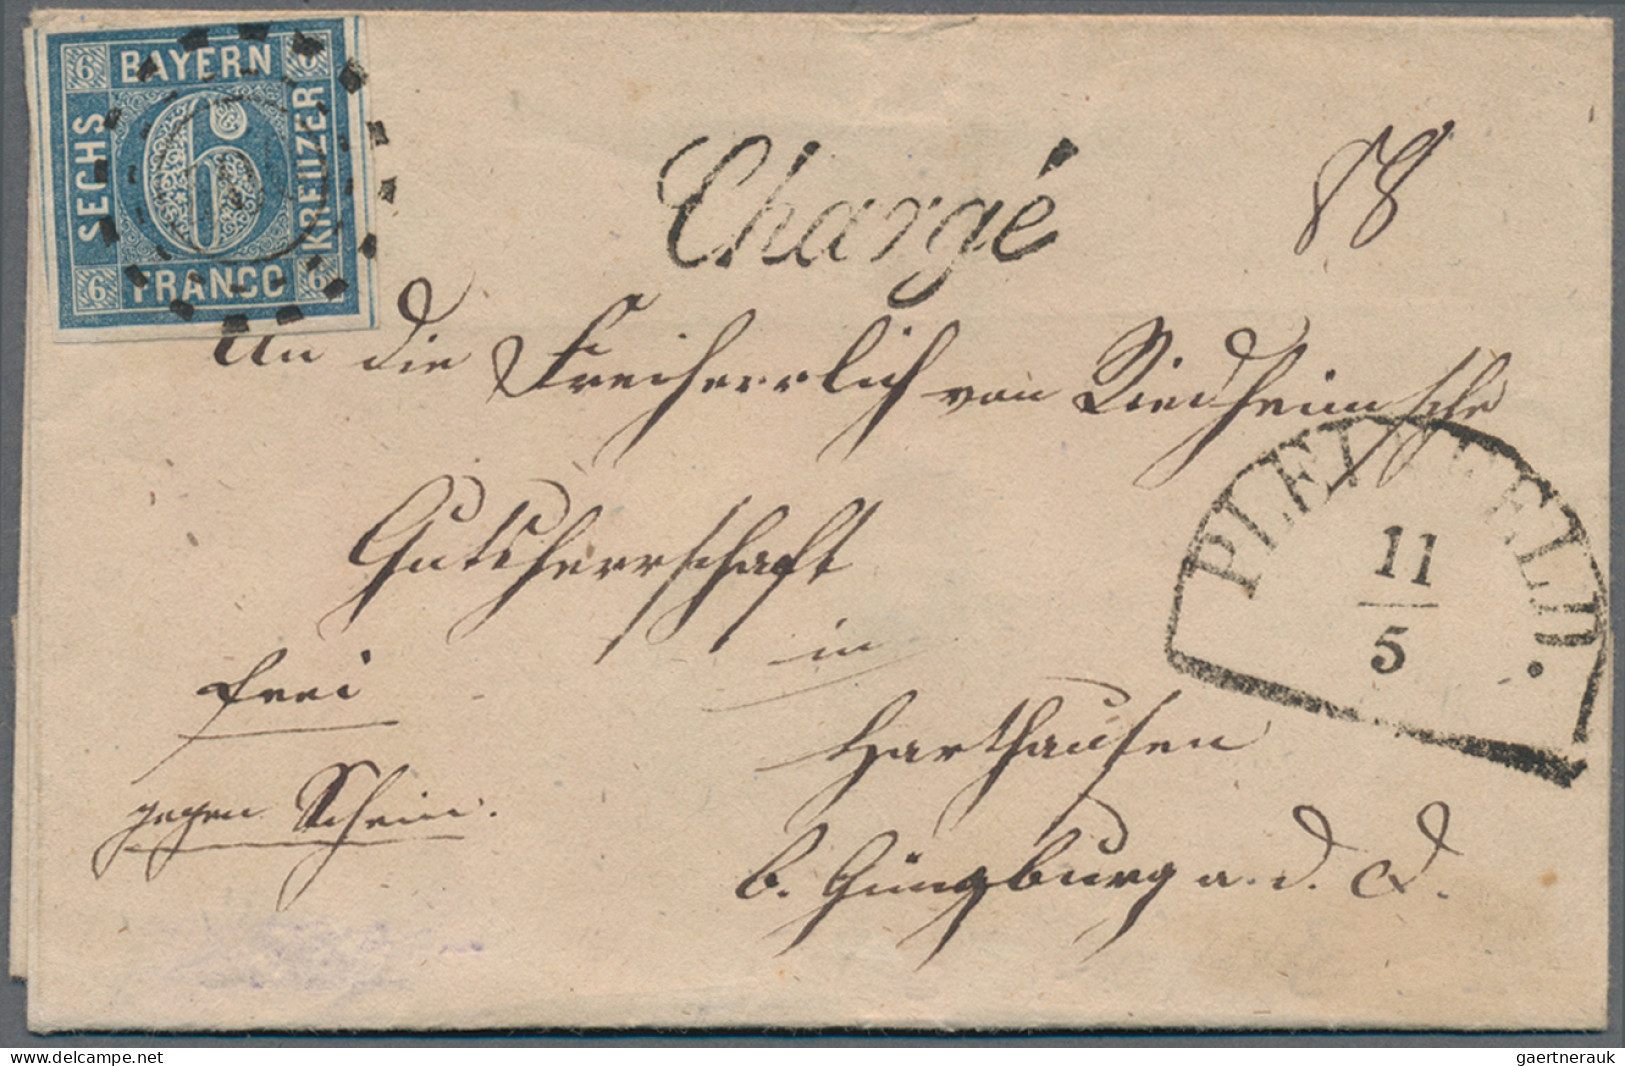 6 BAYERN 6
SECHS
6
KREUZER
6 FRANCO 6
Chargé
88
An die Freiherrlich von Riedheimsche
Gutsherrschaft
in
frei
Harthausen
gegen Schein.
b. Günzburg a. d. D.
PLEINFELD.
11
5
www.delcampe.net
gaertnerauk